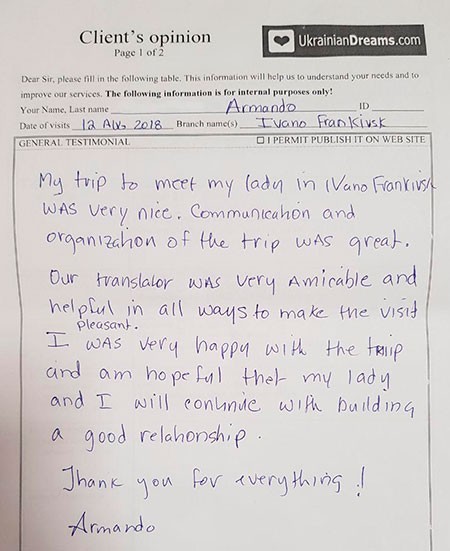 Client's opinion
Page 1 of 2
UkrainianDreams.com
Dear Sir, please fill in the following table. This information will help us to understand your needs and to
improve our services. The following information is for internal purposes only!
Your Name, Last name Armando ID
Date of visits 12 AUG 2018 Branch name(s) Ivano Frankivsk
GENERAL TESTIMONIAL ☐ I PERMIT PUBLISH IT ON WEB SITE
My trip to meet my lady in IVano Frankivsk
WAS very nice. Communication and
organization of the trip WAS great.
Our translator WAS very Amicable and
helpful in all ways to make the visit
pleasant.
I WAS very happy with the trip
and am hopeful that my lady
and I will continue with building
a good relationship.
Thank you for everything!
Armando